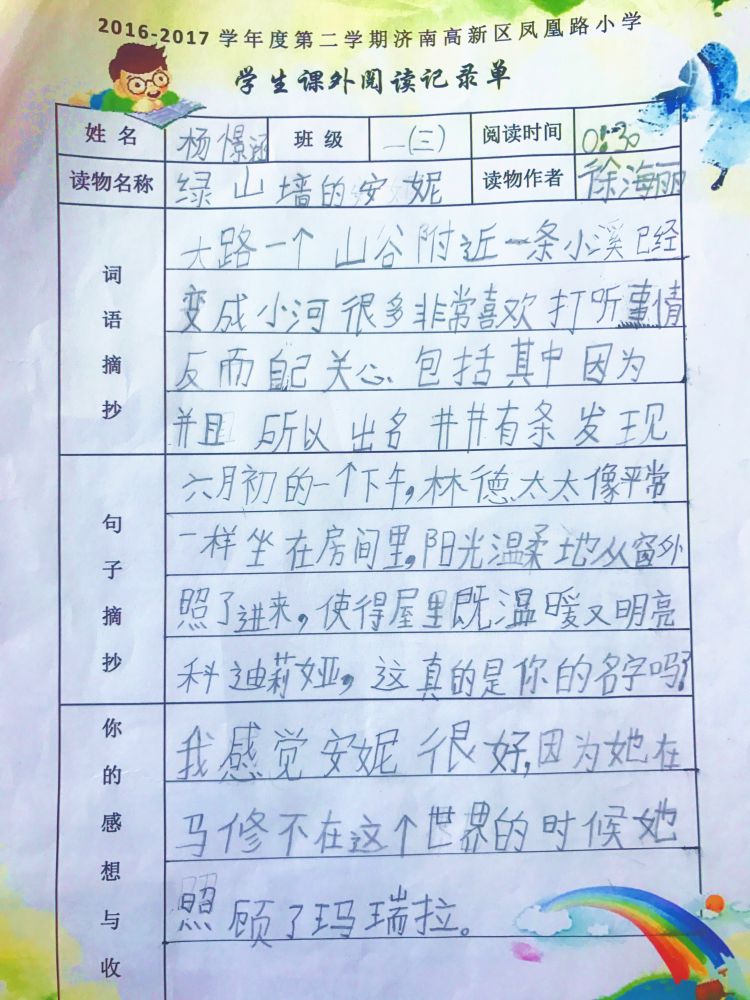 2016-2017 学年度第二学期济南高新区凤凰路小学
学生课外阅读记录单
姓名 杨憬涵 班级 一(三) 阅读时间 0:30
读物名称 绿山墙的安妮 读物作者 徐海丽
词语摘抄
大路一个 山谷附近一条小溪已经
变成小河很多非常喜欢打听事情
反而自己关心包括其中因为
并且 所以出名井井有条发现
句子摘抄
六月初的一个下午,林德太太像平常
一样坐在房间里,阳光温柔地从窗外
照了进来,使得屋里既温暖又明亮
科迪莉娅,这真的是你的名字吗?
你的感想与收
我感觉安妮很好,因为她在
马修不在这个世界的时候她
照顾了玛瑞拉。